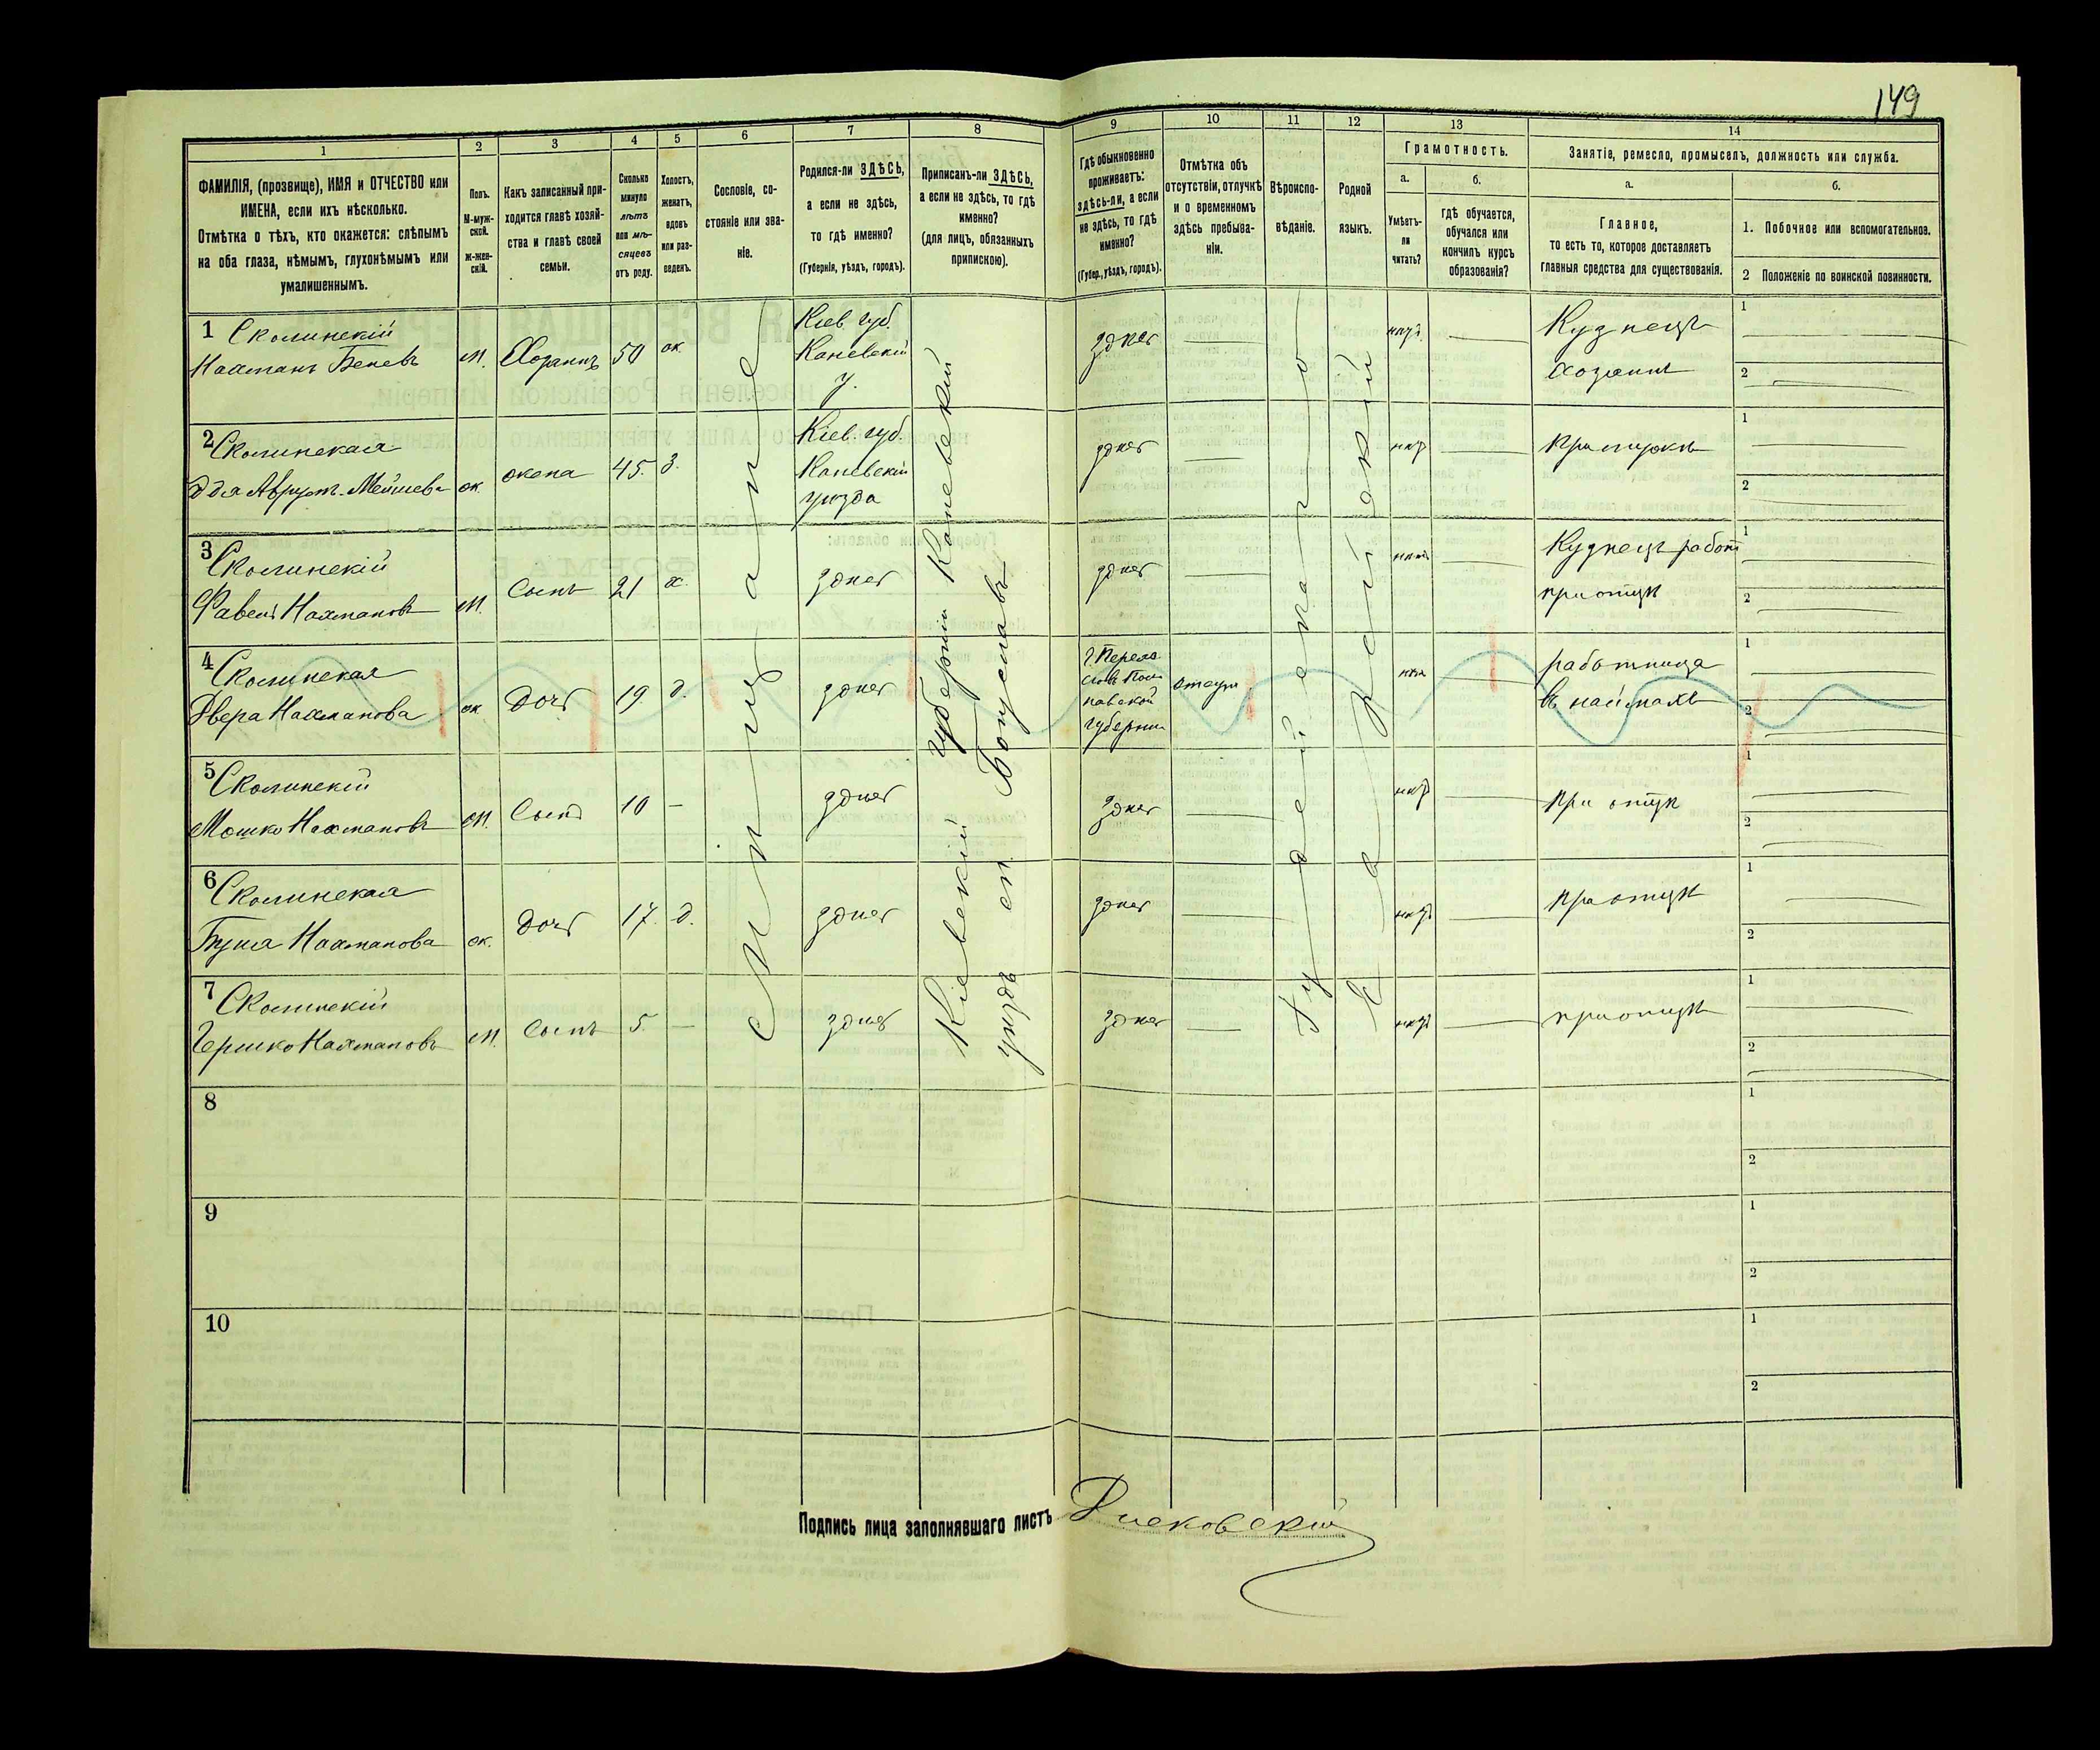 149
1
2
3
4
5
6
7
8
9
10
11
12
13
14
ФАМИЛІЯ, (прозвище), ИМЯ и ОТЧЕСТВО или
ИМЕНА, если ихъ нѣсколько.
Отмѣтка о тѣхъ, кто окажется: слѣпымъ
на оба глаза, нѣмымъ, глухонѣмымъ или
умалишеннымъ.
Полъ.
М-муж-
ской.
Ж-жен-
скій.
Какъ записанный при-
ходится главѣ хозяй-
ства и главѣ своей
семьи.
Сколько
минуло
лѣтъ
или мѣ-
сяцевъ
отъ роду.
Холостъ,
женатъ,
вдовъ
или раз-
веденъ.
Сословіе, со-
стояніе или зва-
ніе.
Родился-ли ЗДѢСЬ,
а если не здѣсь,
то гдѣ именно?
(Губернія, уѣздъ, городъ).
Приписанъ-ли ЗДѢСЬ,
а если не здѣсь, то гдѣ
именно?
(для лицъ, обязанныхъ
припискою).
Гдѣ обыкновенно
проживаетъ:
здѣсь-ли, а если
не здѣсь, то гдѣ
именно?
(Губер., уѣздъ, городъ).
Отмѣтка объ
отсутствіи, отлучкѣ
и о временномъ
здѣсь пребыва-
ніи.
Вѣроиспо-
вѣданіе.
Родной
языкъ.
Грамотность.
а.
Умѣетъ-
ли
читать?
б.
гдѣ обучается,
обучался или
кончилъ курсъ
образованія?
Занятіе, ремесло, промыселъ, должность или служба.
а.
Главное,
то есть то, которое доставляетъ
главныя средства для существованія.
б.
1. Побочное или вспомогательное.
2 Положеніе по воинской повинности.
Мѣщане
Кіевскій губерніи Каневскій
уѣздъ м. Богуславъ
Іудейское
Еврейскій
1 Сколинскій
Нахманъ Беневъ
М. Хозяинъ 50 ж.
Кіев. губ.
Каневскій
у.
здѣсь
Кузнецъ
хозяинъ
1
2
2 Сколинская
ж. жена 45. З.
Кіев. губ
Каневскій
уѣзда
здѣсь
при мужѣ
1
2
3 Сколинскій
Нахмановъ
М. Сынъ 21 х.
здѣсь
здѣсь
Кузнецъ работ
при отцѣ
1
2
4 Сколинская
Двера Нахманова
ж Дочь 19. д.
здѣсь
г. Переяс
славъ Пол
тавской
губерніи
отсут.
работница
въ наймахъ
1
2
5 Сколинскій
Мошко Нахмановъ
М. Сынъ 10 —
здѣсь
здѣсь
при отцѣ
1
2
6 Сколинская
Нахманова
ж. Дочь 17. д.
здѣсь
здѣсь
при отцѣ
1
2
7 Сколинскій
Гершко Нахмановъ
М. Сынъ 5. —
здѣсь
здѣсь
при отцѣ
1
2
8
1
2
9
1
2
10
1
2
Подпись лица заполнявшаго листъ